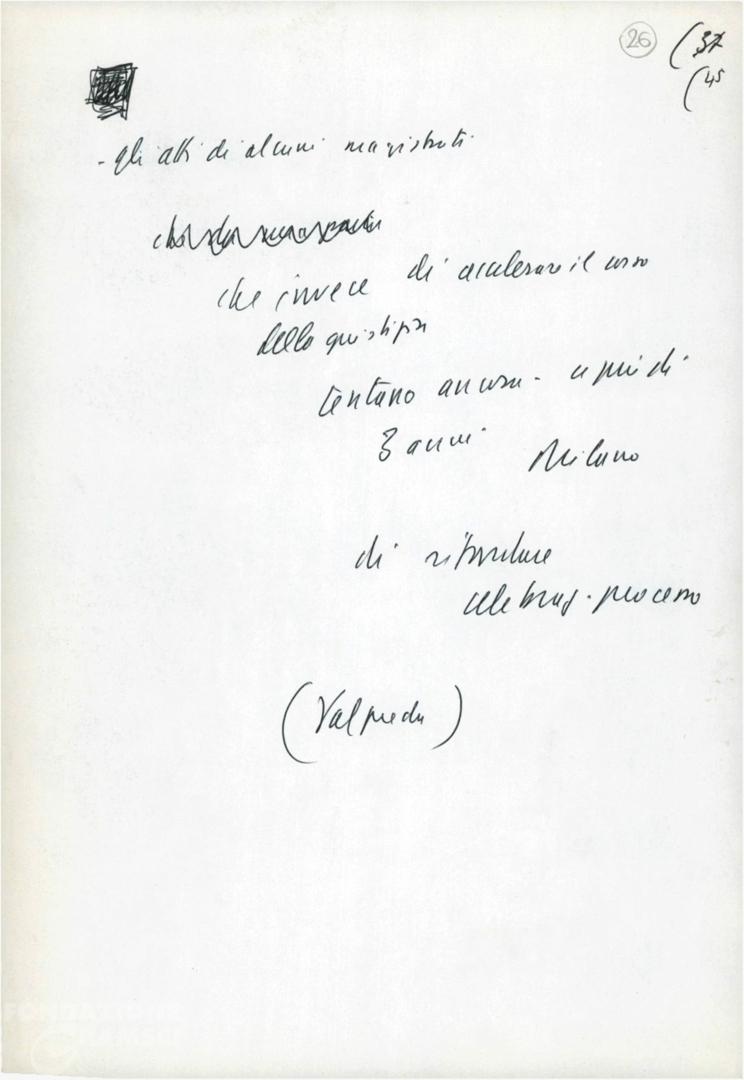 26 (37
(45
- gli atti di alcuni magistrati
che invece di accelerare il corso
della giustizia
tentano ancora - a più di
3 anni Milano
di ritardare
celebraz. processo
(Valpreda)
FONDAZIONE
GRAMSCI